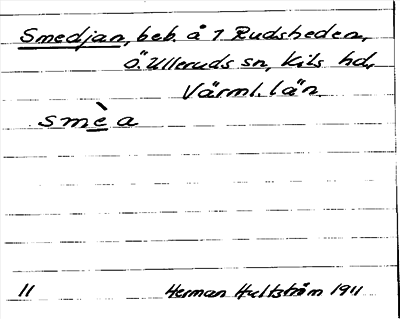 Smedjan, beb. å 1 Rudsheden,
Ö. Ulleruds sn, Kils hd,
Värml. län.
smè̱a
11 Herman Hultström 1911